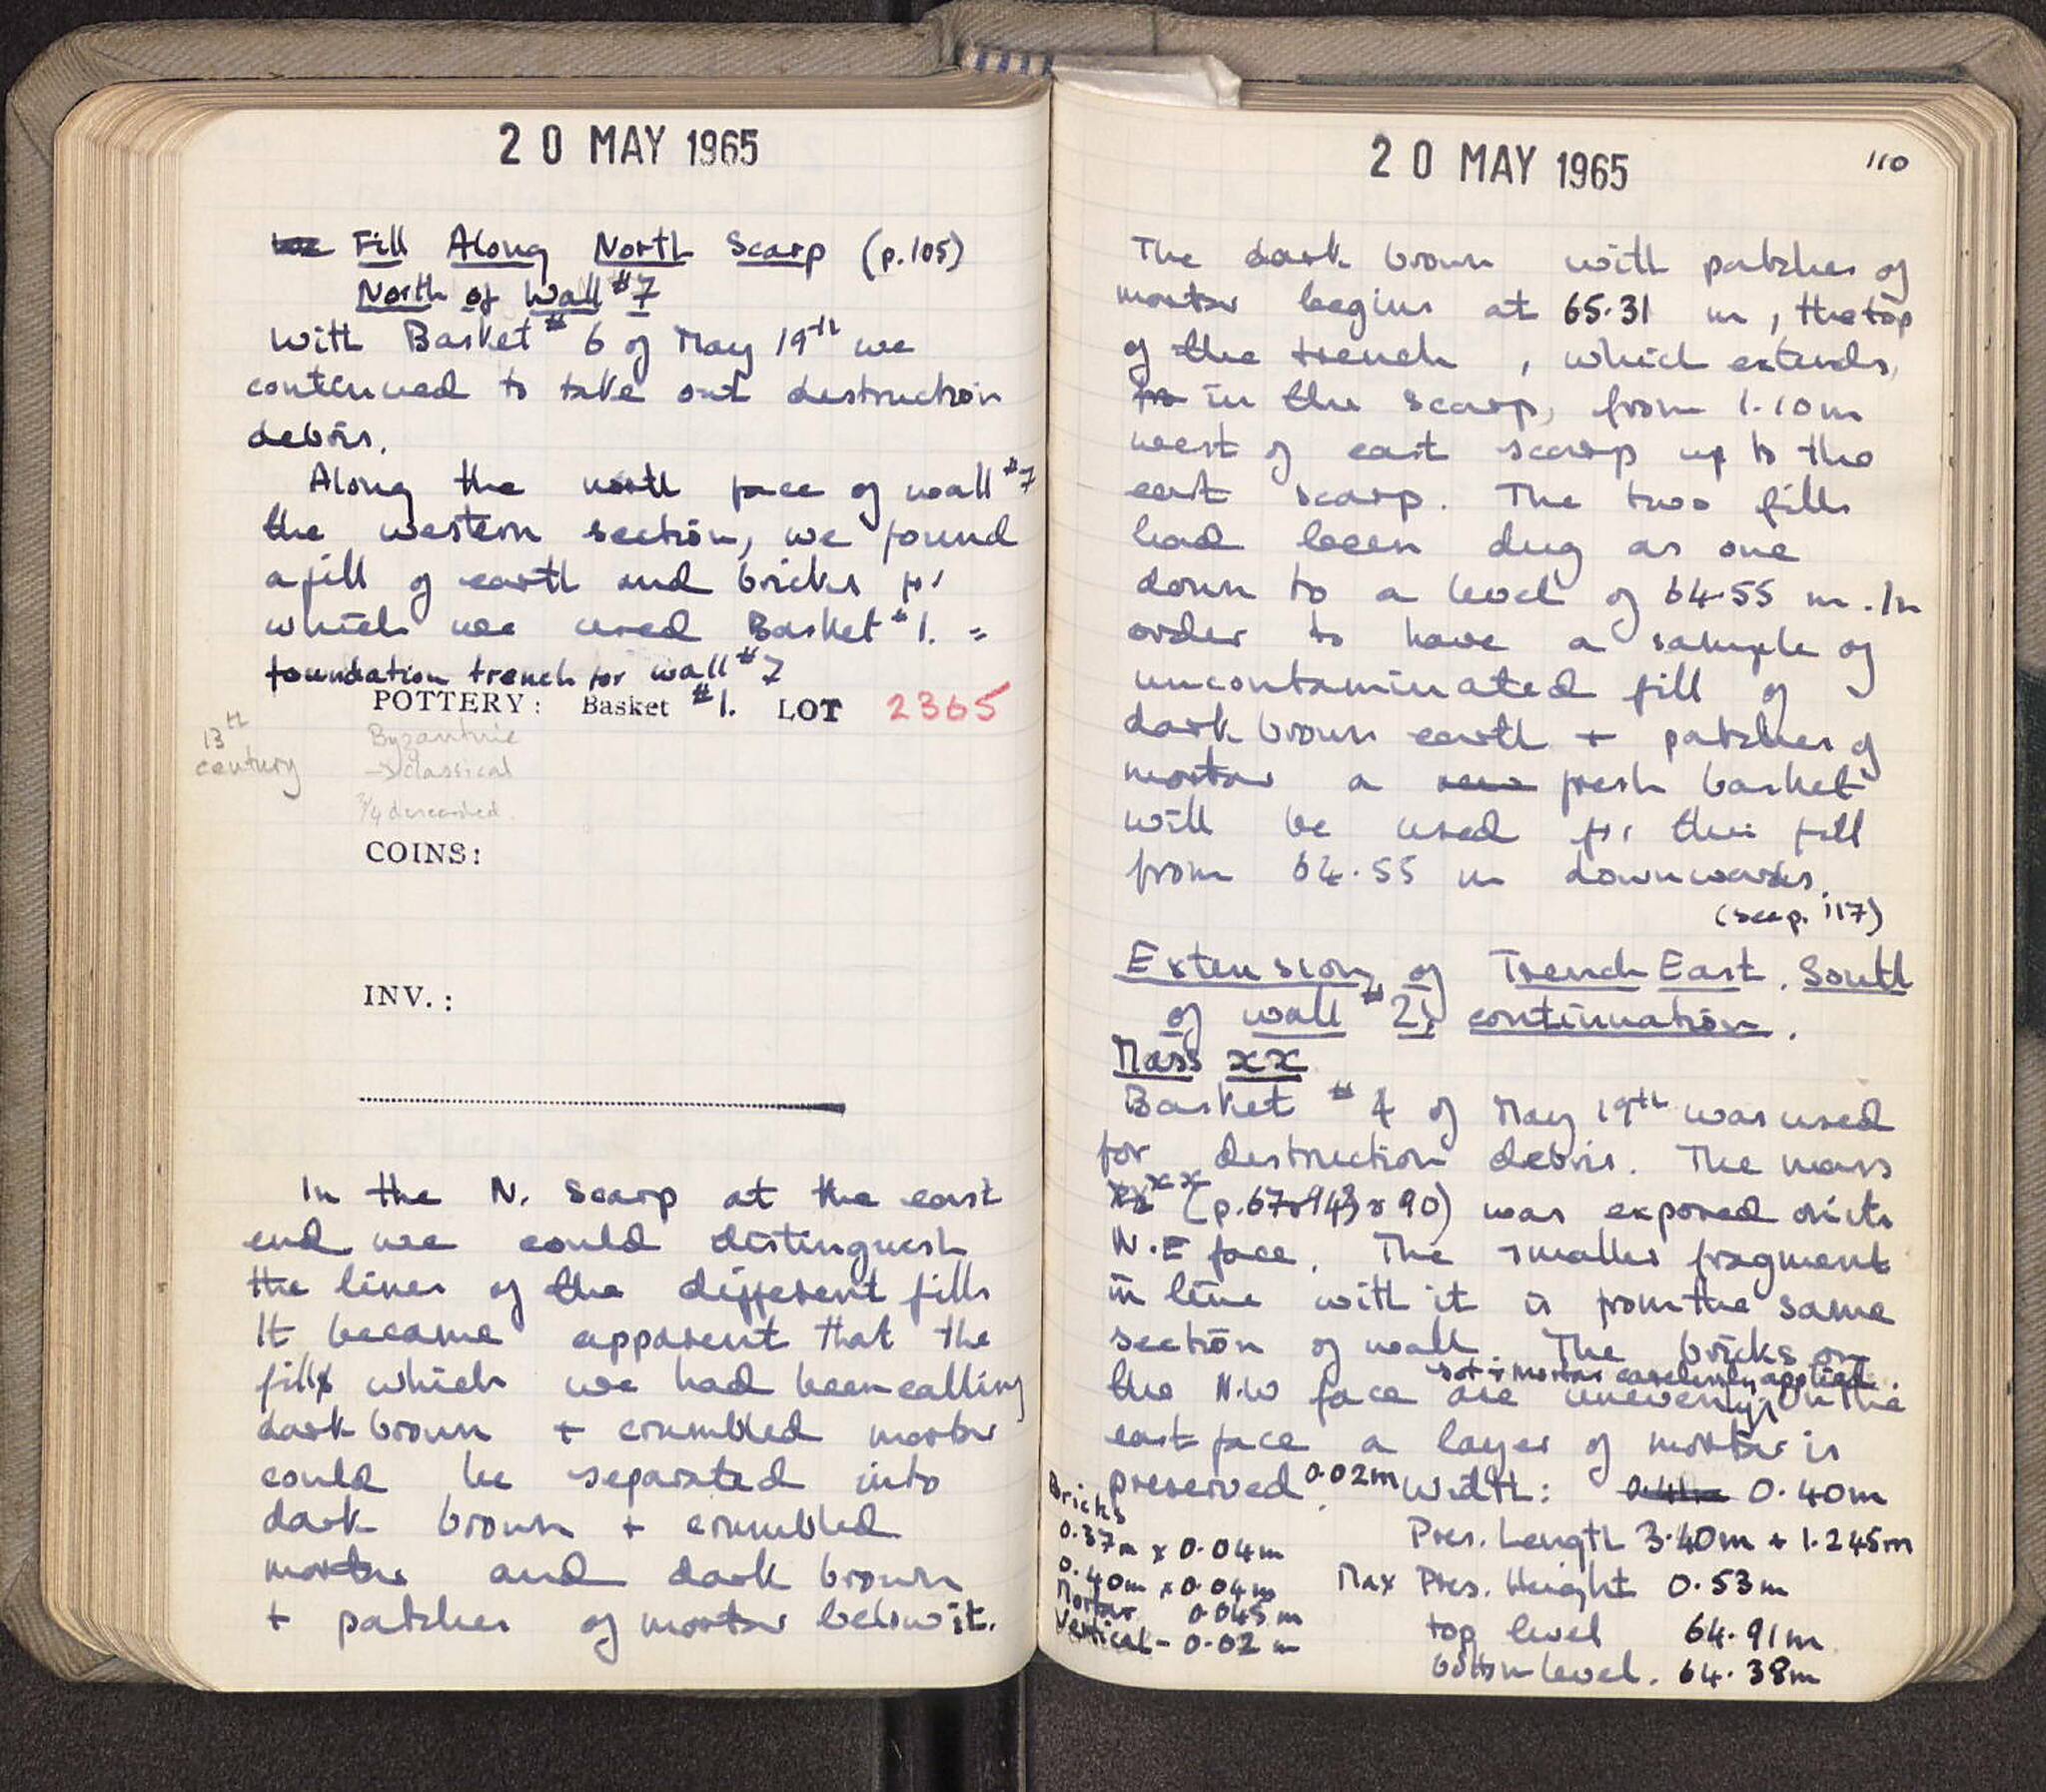 20 MAY 1965
Fill Along North Scarp (p.105)
North of Wall #7
With Basket # 6 of May 19th we
continued to take out destruction
debris.
Along the north face of wall #7
the western section, we found
a fill of earth and bricks for
which we used Basket #1. =
foundation trench for wall #7
POTTERY: Basket #1. LOT 2365
13th
century
Byzantine
→ classical
3/4 discarded.
COINS:
INV.:
In the N. Scarp at the east
end we could distinguish
the lines of the different fills
It became apparent that the
fill which we had been calling
dark brown + crumbled mortar
could be separated into
dark brown + crumbled
mortar and dark brown
+ patches of mortar below it.
20 MAY 1965
110
The dark brown with patches of
mortar begins at 65.31 m, the top
of the trench, which extends,
in the scarp, from 1.10m
west of east scarp up to the
east scarp. The two fills
had been dug as one
down to a level of 64.55 m. In
order to have a sample of
uncontaminated fill of
dark brown earth + patches of
mortar a fresh basket
will be used for this fill
from 64.55 m downwards.
(see p. 117)
Extension of Trench East. South
of wall #2, continuation.
Mass xx
Basket #4 of May 19th was used
for destruction debris. The mass
xx (p.67 + 90) was exposed on its
N.E face. The smaller fragment
in line with it is from the same
section of wall. The bricks on
set + mortar carelessly applied.
the N.W face are unevenly, On the
east face a layer of mortar is
preserved 0.02m. Width: 0.40m
Pres. Length 3.40m + 1.245m
Max Pres. Height 0.53m
top level 64.91m
bottom level. 64.38m
Bricks
0.37m x 0.04m
0.40m x 0.04m
Mortar 0.045m
Vertical - 0.02m